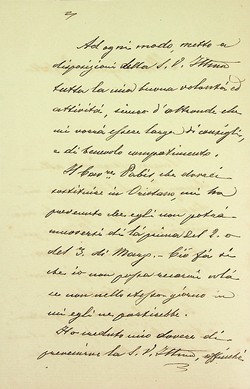 Ad ogni modo, metto a
disposizioni della S. V. Illma
tutta la mia buona volontà ed
attività, sicuro d'altronde che
mi vorrà essere largo di consigli
e di benevolo compatimento.
Il Cavre Pabis, che dovrei
sostituire in Oristano, mi ha
prevenuto che egli non potrà
muoversi di là prima del 2. o
del 3. di Marzo. Ciò fa sì
che io non possa recarmi colà
se non nello stesso giorno in
cui egli ne partirebbe.
Ho creduto mio dovere di
prevenirne la S. V. Illma, affinché